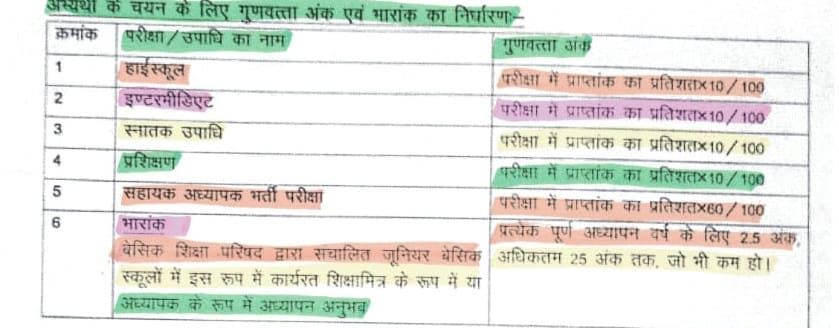 अभ्यर्थी के चयन के लिए गुणवत्ता अंक एवं भारांक का निर्धारण:–
क्रमांक परीक्षा/उपाधि का नाम गुणवत्ता अंक
1 हाईस्कूल परीक्षा में प्राप्तांक का प्रतिशत×10/100
2 इण्टरमीडिएट परीक्षा मे प्राप्तांक का प्रतिशत×10/100
3 स्नातक उपाधि परीक्षा में प्राप्तांक का प्रतिशत×10/100
4 प्रशिक्षण परीक्षा में प्राप्तांक का प्रतिशत×10/100
5 सहायक अध्यापक भर्ती परीक्षा परीक्षा में प्राप्तांक का प्रतिशत×60/100
6 भारांक प्रत्येक पूर्ण अध्यापन वर्ष के लिए 2.5 अंक,
बेसिक शिक्षा परिषद द्वारा संचालित जूनियर बेसिक अधिकतम 25 अंक तक, जो भी कम हो।
स्कूलों में इस रूप में कार्यरत शिक्षामित्र के रूप में या
अध्यापक के रूप में अध्यापन अनुभव